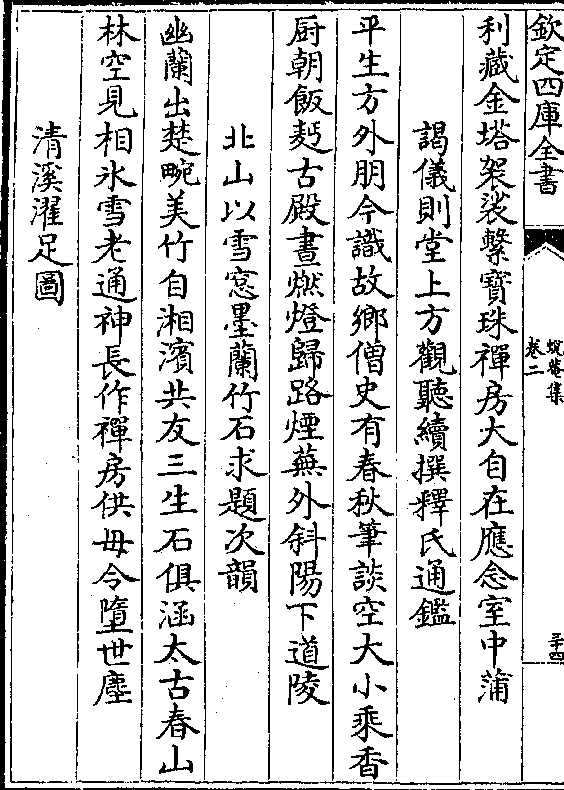 欽定四庫全書
蛻菴集
卷二
三十四
利藏金塔袈裟繫寶珠禪房大自在應念室中蒲
謁儀則堂上方觀聽續撰釋氏通鑑
平生方外朋今識故鄉僧史有春秋筆談空大小乘香
厨朝飯趂古殿晝燃燈歸路煙蕪外斜陽下道陵
北山以雪窓墨蘭竹石求題次韻
幽蘭出楚畹美竹自湘濱共友三生石俱涵太古春山
林空見相氷雪老通神長作禪房供毋令墮世塵
清溪濯足圖